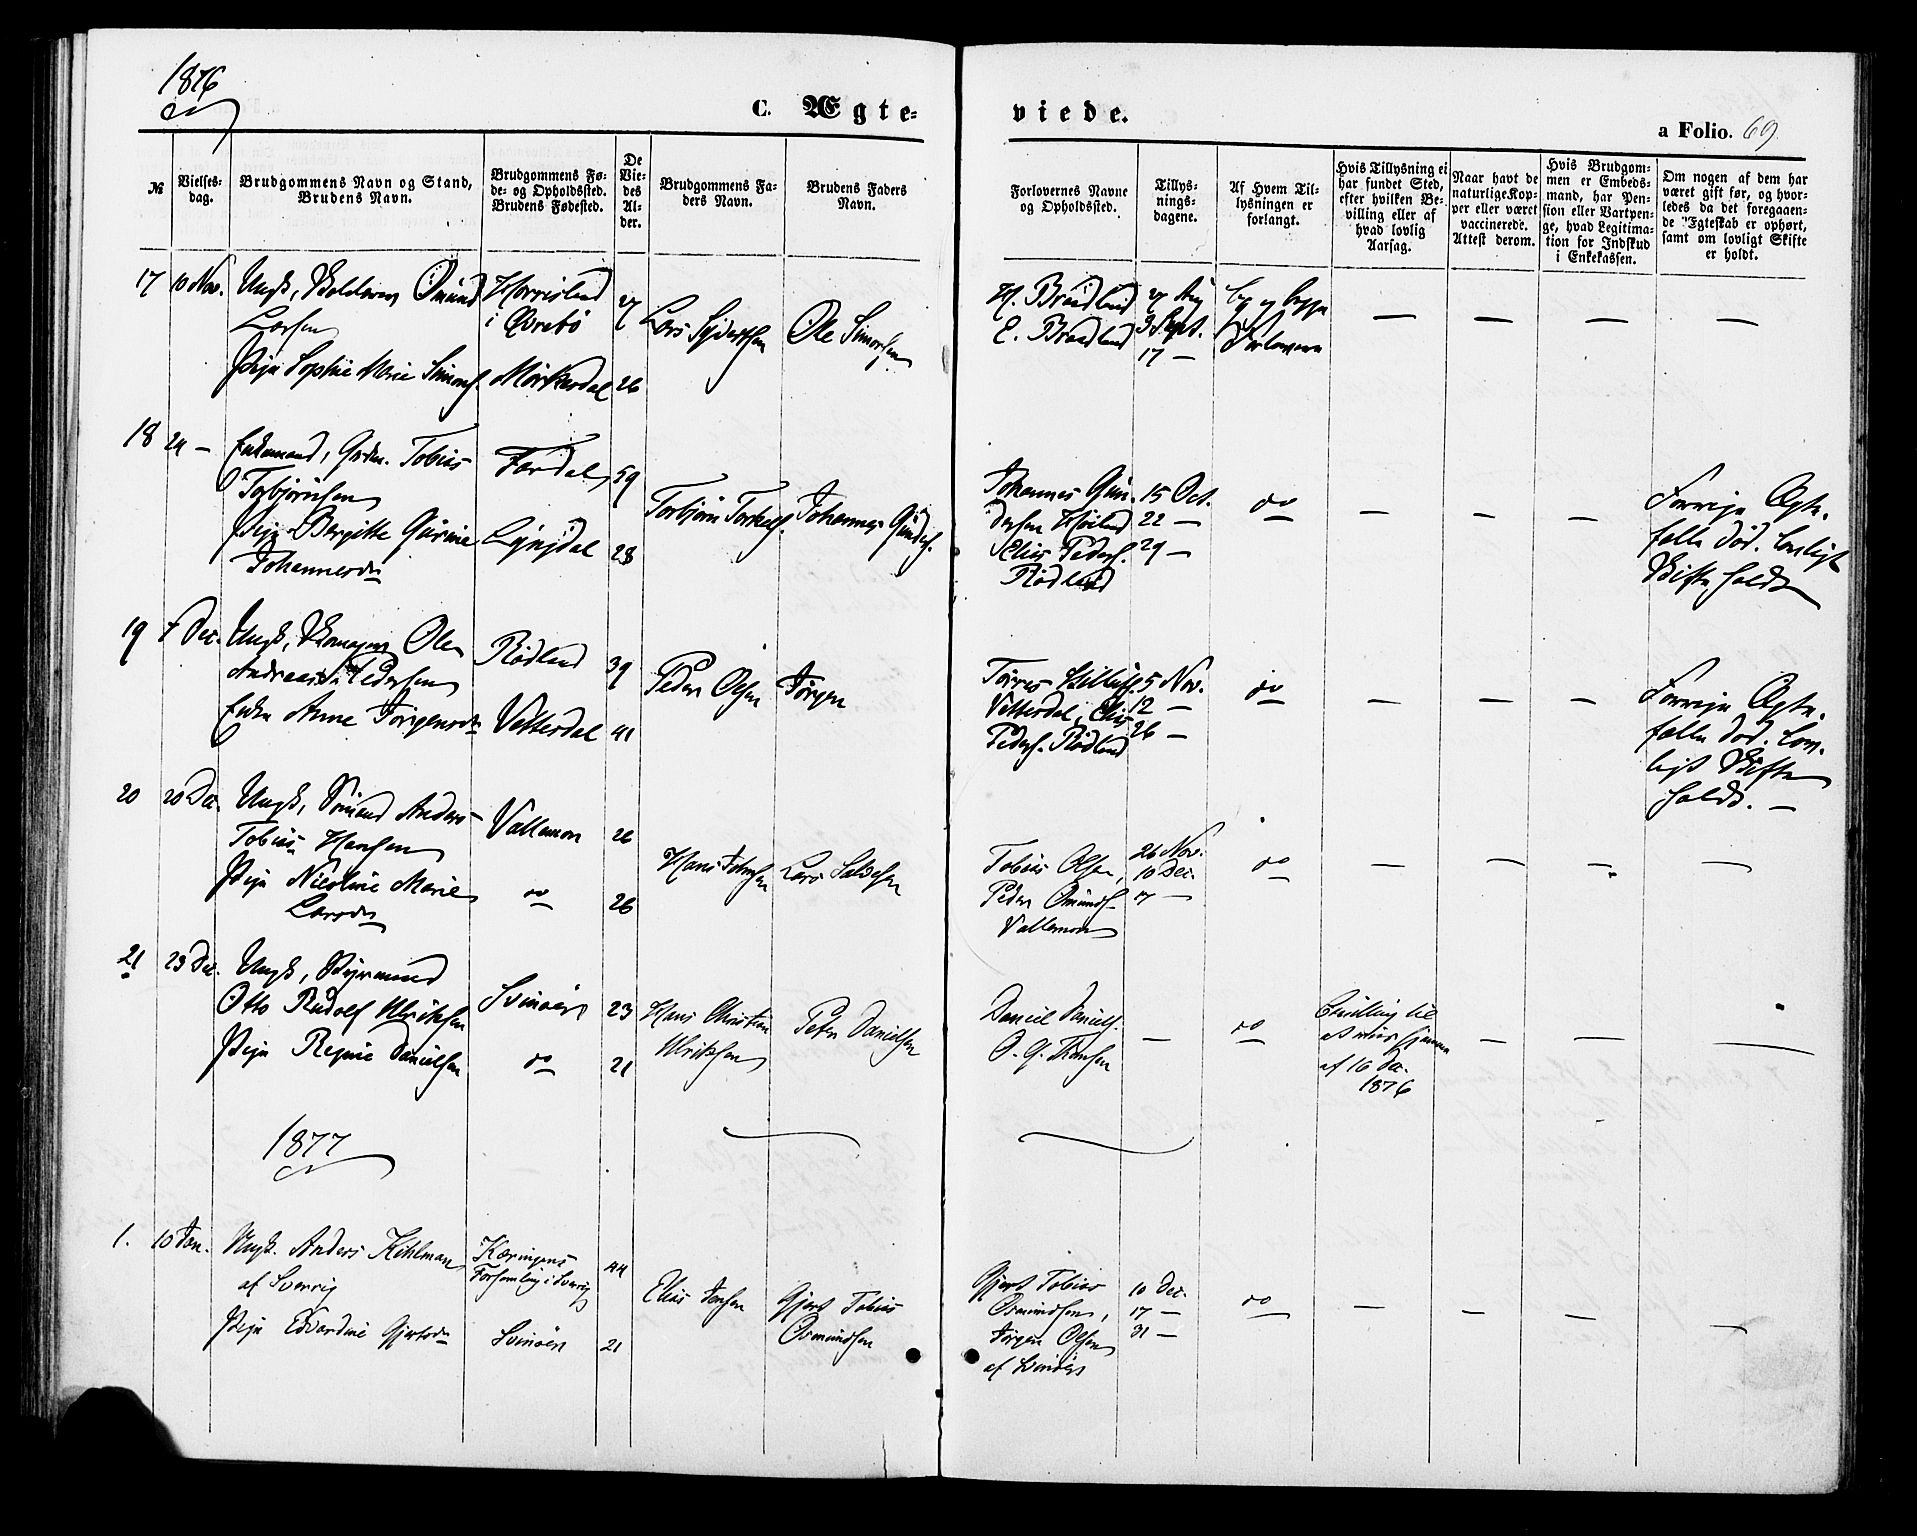 1876
C. Ægte-
viede.
a Folio. 69.
№
Vielses-
dag.
Brudgommens Navn og Stand,
Brudens Navn.
Brudgommens Fø-
de- og Opholdssted.
Brudens Fødested.
De
Vie-
des
Al-
der.
Brudgommens Fa-
ders Navn.
Brudens Faders
Navn.
Forlovernes Navne
og Opholdssted.
Tillys-
nings-
dagene.
Af Hvem Til-
lysningen er
forlangt.
Hvis Tillysning ei
har fundet Sted,
efter hvilken Be-
villing eller af
hvad lovlig
Aarsag.
Naar havt de
naturlige Kop-
per eller været
vaccinerede.
Attest derom.
Hvis Brudgom-
men er Embeds-
mand, har Pen-
sion eller Vartpen-
ge, hvad Legitima-
tion for Indskud
i Enkekassen.
Om nogen af dem har
været gift før, og hvor-
ledes da det foregaaen-
de Egteskab er ophørt,
samt om lovligt Skifte
er holdt.
17
10 Nov.
Ungk, Omund
Larsen
Pige Sophie Marie Simons.
i Øvrebö
27
26
Ole Simonsen
H. Braadland
E. Braadland
27 Aug
3 Sept.
17 —
Forloverne
18
24 —
Enkemand, Grdm. Tobias
Torbjörnsen
Pige Birgitte Gurine
Johannesdr
Fardal
Lyngdal
59
28
Torbjörn Torkels.
Johannes Gunders.
Johannes Gun-
dersen Höiland
Elias Peders.
Rödland
15 Oct.
22 —
29 —
do
Forrige Ægte-
fælle död. Lovligt
Skifte holdt
19
7 Dec.
Ungk, Ole
Andreas Pedersen
Enke Anne Jörgensdr
Rödland
Vatterdal
39
41
Peder Olsen
Jörgen
Vatterdal, Elias
Peders. Rödland
5 Nov.
12 —
26 —
do
Forrige Ægte-
fælle död. Lov-
ligt Skifte
holdt. —
20
20 Dec.
Ungk, Sömand Anders
Tobias Hansen
Pige Nicoline Marie
Larsdr
Vallemon
do
26
26
Hans Johnsen
Lars Salvesen
Tobias Olsen,
Peder Omunds.
Vallemon
26 Nov.
10 Dec.
17 —
do
21
23 Dec.
Ungk, Styrmand
Otto Rudolf Ulriksen
Pige Regine Danielsen
Svinöer
do
23
21
Hans Christian
Ulriksen
Peter Danielsen
Daniel Daniels.
—
do
Bevilling til
at vies hjemme
af 16 Dec.
1876
1877
1.
10 Jan.
Ungk. Anders Kihlman
af Sverrig
Pige Edvardine Gjertsdr
Kæringens
Forsamling i Sverrig
Svinöen
44
21
Elias Jensen
Gjert Tobias
Osmundsen
Gjert Tobias
Osmundsen,
Jörgen Olsen
af Svinöer
10 Dec.
17 —
31 —
do